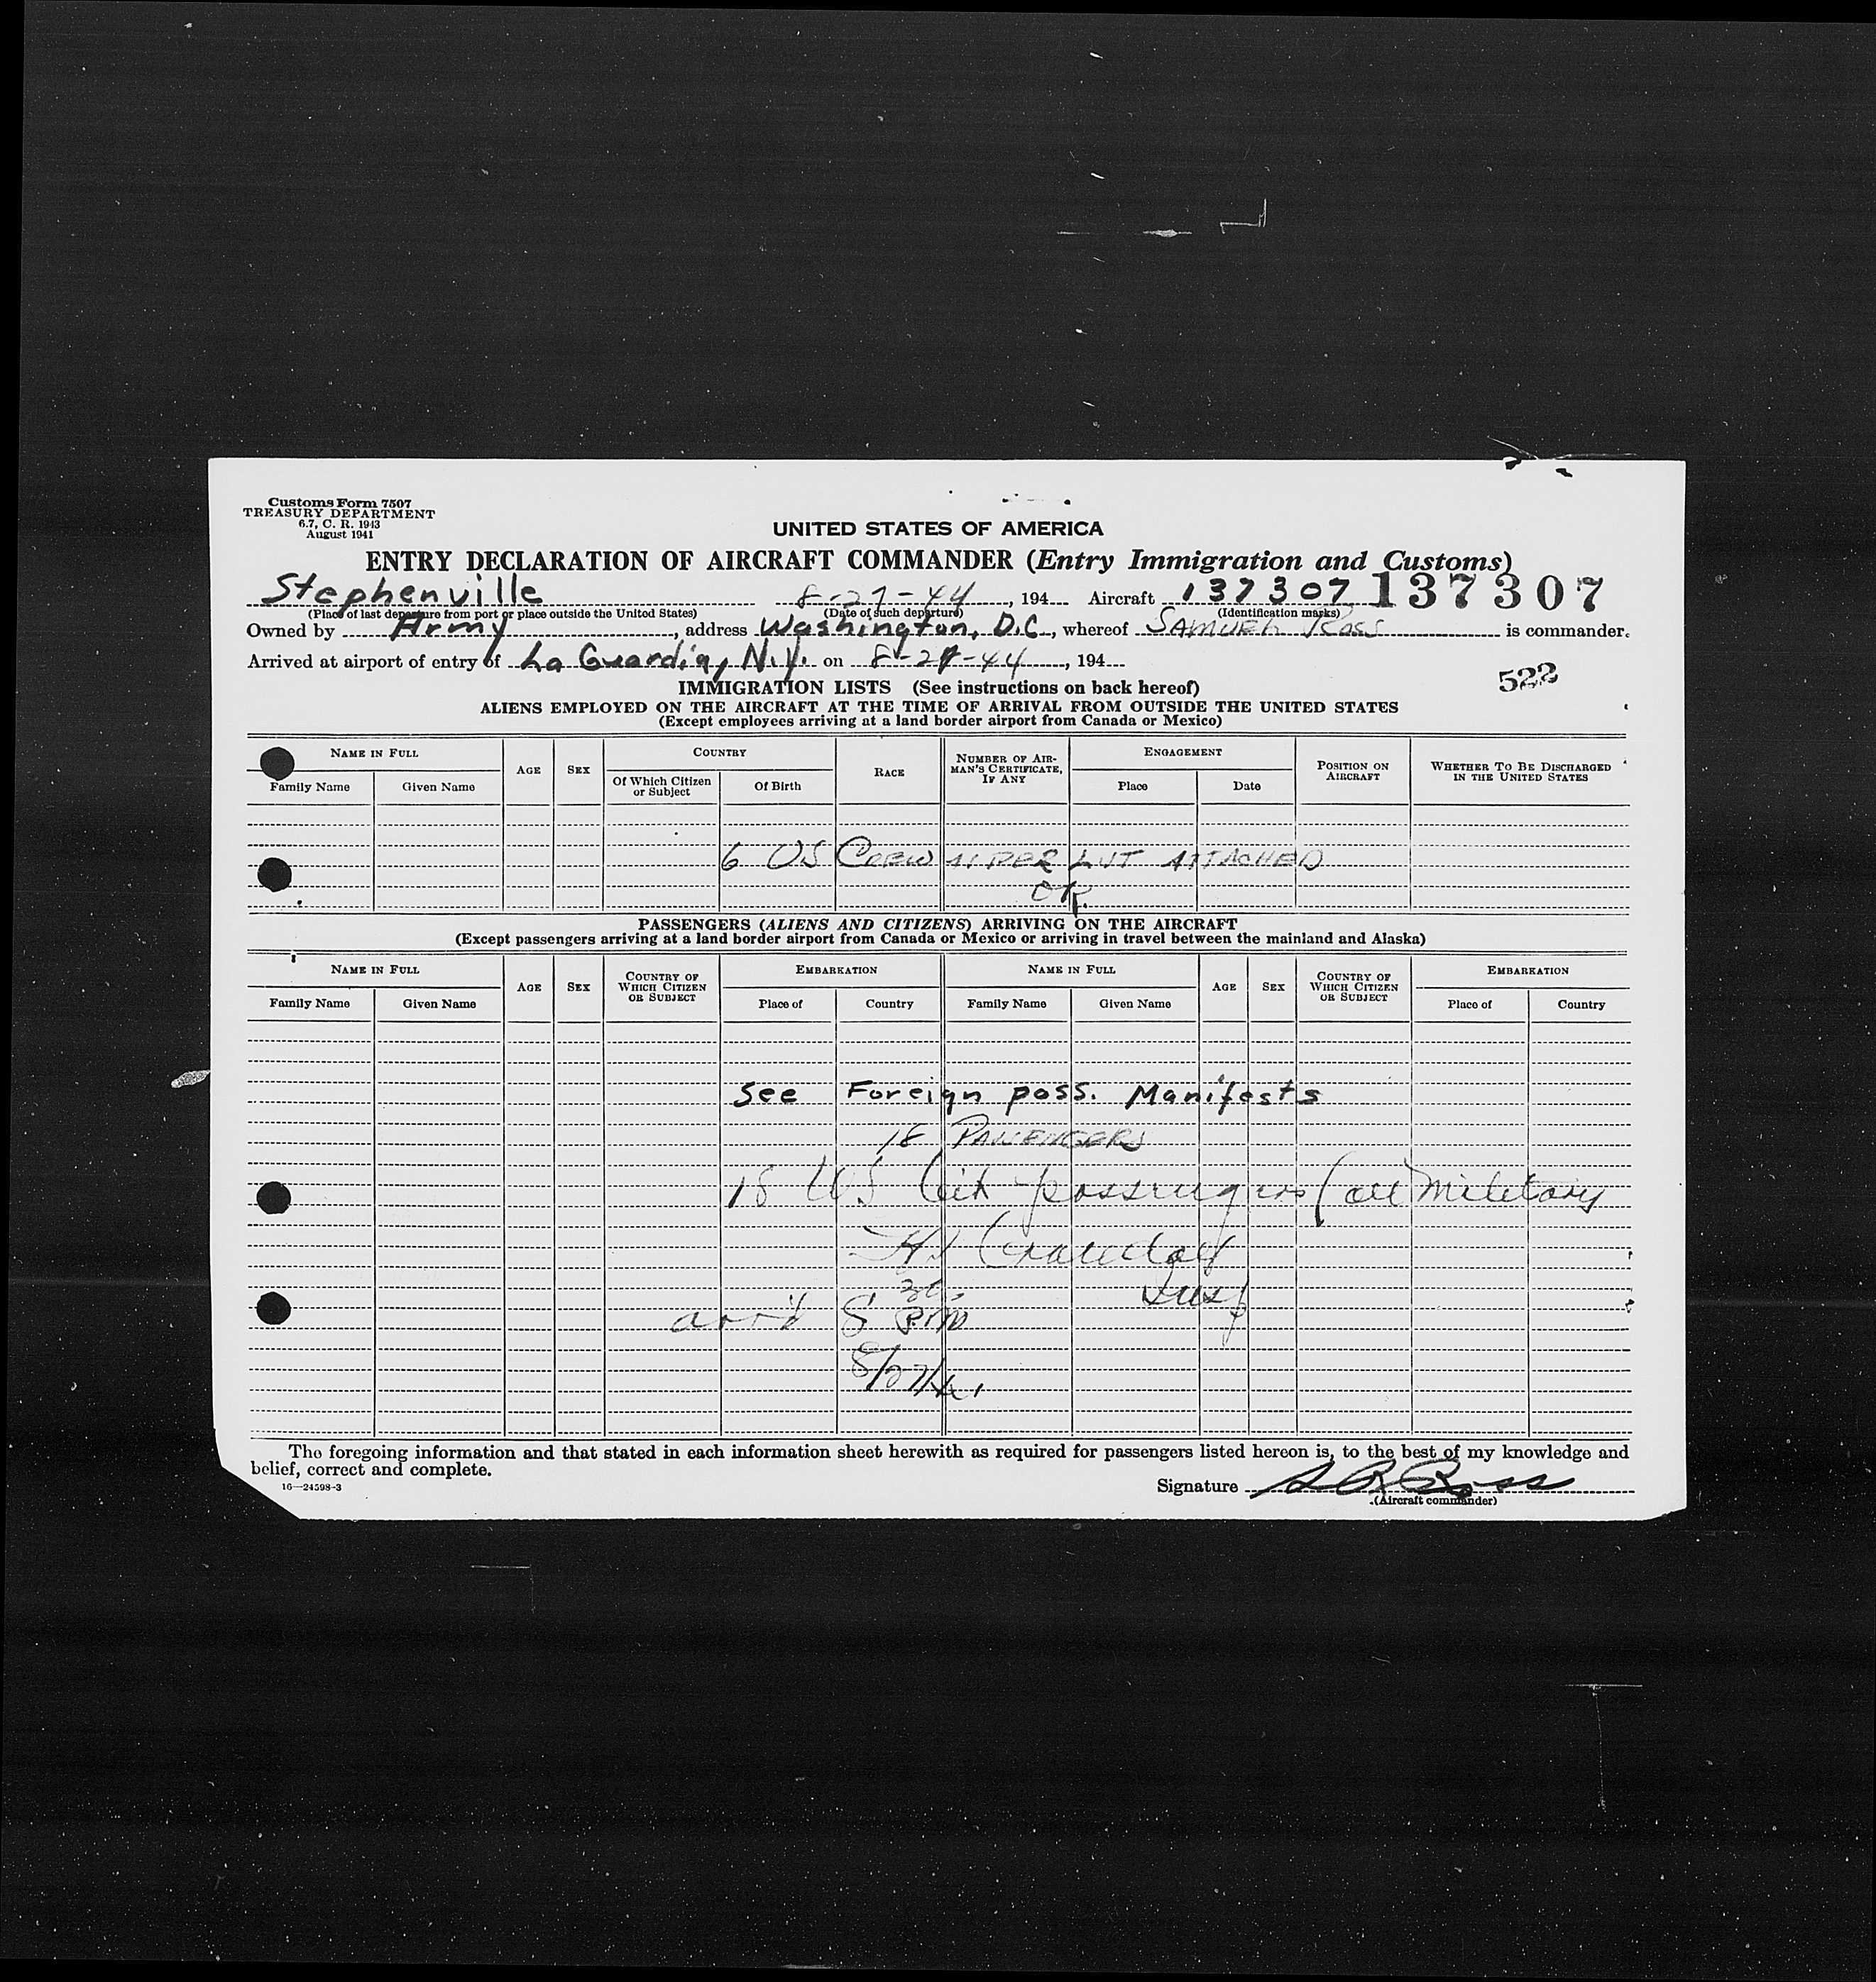 Customs Form 7507
TREASURY DEPARTMENT
6.7, C. R. 1943
August 1941
UNITED STATES OF AMERICA
ENTRY DECLARATION OF AIRCRAFT COMMANDER (Entry Immigration and Customs)
Stephenville 8-27-44, 194 Aircraft 137307 137307
(Place of last departure from port or place outside the United States) (Date of such departure) (Identification marks)
Owned by Army, address Washington, D.C., whereof SAMUEL ROSS is commander.
Arrived at airport of entry of La Guardia, N.Y. on 8-27-44, 194
522
IMMIGRATION LISTS (See instructions on back hereof)
ALIENS EMPLOYED ON THE AIRCRAFT AT THE TIME OF ARRIVAL FROM OUTSIDE THE UNITED STATES
(Except employees arriving at a land border airport from Canada or Mexico)
NAME IN FULL AGE SEX COUNTRY RACE NUMBER OF AIRMAN'S CERTIFICATE, IF ANY ENGAGEMENT POSITION ON AIRCRAFT WHETHER TO BE DISCHARGED IN THE UNITED STATES
Family Name Given Name Of Which Citizen or Subject Of Birth Place Date
6 US CREW AS PER LIST ATTACHED
OK.
PASSENGERS (ALIENS AND CITIZENS) ARRIVING ON THE AIRCRAFT
(Except passengers arriving at a land border airport from Canada or Mexico or arriving in travel between the mainland and Alaska)
NAME IN FULL AGE SEX COUNTRY OF WHICH CITIZEN OR SUBJECT EMBARKATION NAME IN FULL AGE SEX COUNTRY OF WHICH CITIZEN OR SUBJECT EMBARKATION
Family Name Given Name Place of Country Family Name Given Name Place of Country
See Foreign pass. Manifests
18 PASSENGERS
18 US Cit passengers (all military
Insp
arr'd 8 30 P.M
8/27/44
The foregoing information and that stated in each information sheet herewith as required for passengers listed hereon is, to the best of my knowledge and
belief, correct and complete.
16—24598-3
Signature S R Ross
(Aircraft commander)